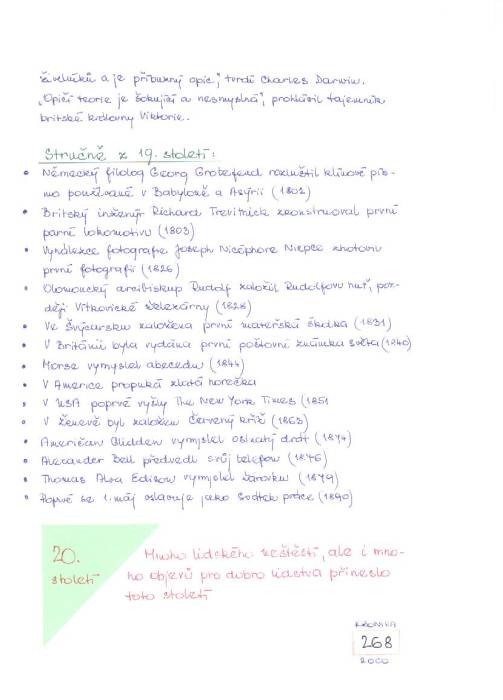 živelníků a je příbuzný opic", tvrdí Charles Darwin.
"Opičí teorie je šokující a nesmyslná", prohlásil tajemník
britské královny Viktorie.
Stručně z 19. století:
• Německý filolog Georg Grotefend rozluštil klínové pís-
mo používané v Babyloně a Asýrii (1802)
• Britský inženýr Richard Trevitnick zkonstruoval první
parní lokomotivu (1803)
• Vynálezce fotografie Joseph Nicéphore Niepce zhotovil
první fotografii (1826)
• Olomoucký arcibiskup Rudolf založil Rudolfovu huť, poz-
ději Vítkovické železárny (1828)
• Ve Švýcarsku založena první mateřská školka (1831)
• V Británii byla vydána první poštovní známka světa (1840)
• Morse vymyslel abecedu (1844)
• V Americe propuká zlatá horečka
• V USA poprvé vyšly The New York Times (1851
• V Ženevě byl založen Červený kříž (1863)
• Američan Glidden vymyslel ostnatý drát (1874)
• Alexander Bell předvedl svůj telefon (1876)
• Thomas Alva Edison vymyslel žárovku (1879)
• Poprvé se 1. máj oslavuje jako Svátek práce (1890)
20.
století
Mnoho lidského neštěstí, ale i mno-
ho objevů pro dobro lidstva přineslo
toto století
KRONIKA
268
2000